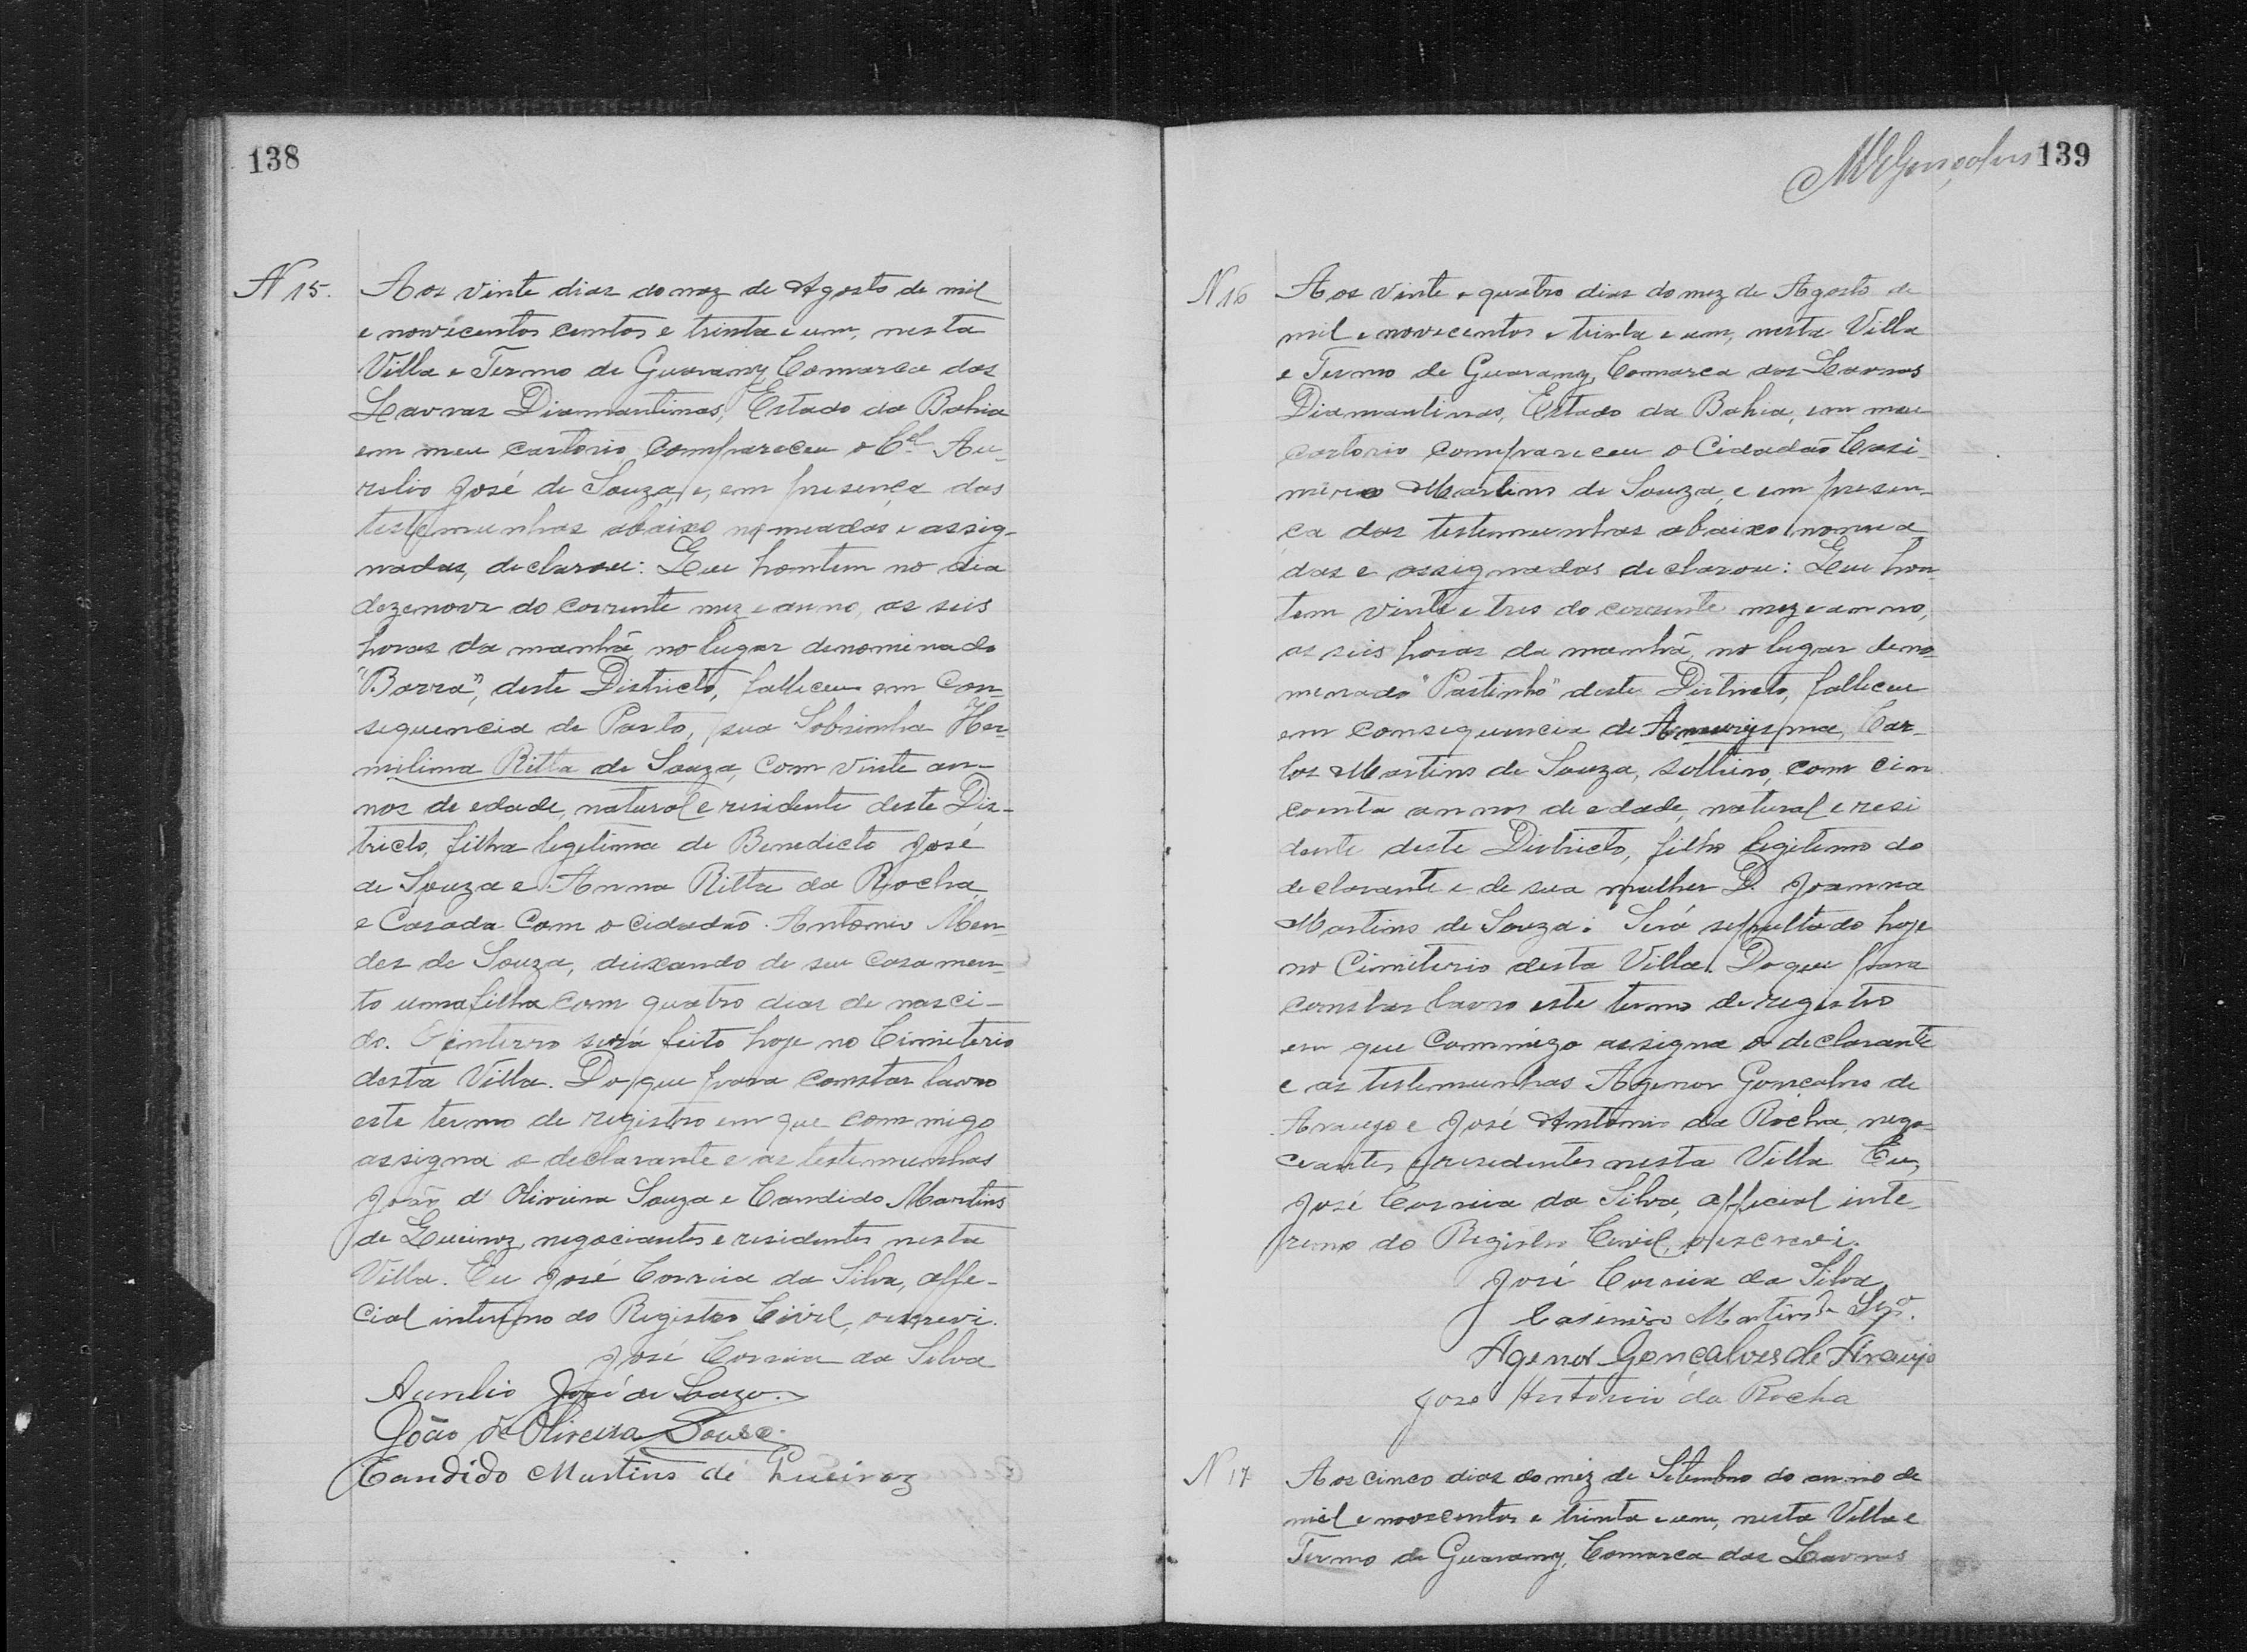 138
N 15.
Aos vinte dias do mez de Agosto de mil
e novecentos centos e trinta e um, nesta
Villa e Termo de Guarany, Comarca das
Lavras Diamantinas, Estado da Bahia
em meu cartorio compareceu o Cel. Au-
relio José de Souza, e, em presença das
testemunhas abaixo nomeadas e assig-
nadas, declarou: Que hontem no dia
dezenove do corrente mez e anno, as seis
horas da manhã, no lugar denominado
"Barra", deste Districto, falleceu em Con-
sequencia de Parto, sua Sobrinha Her-
milina Ritta de Souza, com vinte an-
nos de edade, natural e residente deste Dis-
tricto, filha legitima de Benedicto José
de Souza e Anna Ritta da Rocha
e Casada Com o cidadão Antonio Men-
des de Souza, deixando de seu casamen-
to uma filha com quatro dias de nasci-
da. O enterro será feito hoje no Cimiterio
desta Villa. Do que para constar lavro
este termo de registro em que commigo
assigna o declarante e as testemunhas
João d' Oliveira Souza e Candido Martins
de Queiroz, negociantes e residentes nesta
Villa. Eu José Correia da Silva, offi-
cial interino do Registro Civil, escrevi.
José Correia da Silva
Aurelio José de Souza.
João de Oliveira Souza
Candido Martins de Queiroz
139
N 16
Aos vinte e quatro dias do mez de Agosto de
mil e novecentos e trinta e um, nesta Villa
e Termo de Guarany, Comarca das Lavras
Diamantinas, Estado da Bahia, em meu
cartorio compareceu o Cidadão Casi-
miro Martins de Souza, e em presen-
ça das testemunhas abaixo nomea-
das e assignadas declarou: Que hon-
tem vinte e tres do corrente mez e anno,
as seis horas da manhã, no lugar deno-
minado "Pastinho" deste Districto, falleceu
em consequencia de Aneurysma, Car-
los Martins de Souza, solteiro, com cin
coenta annos de edade, natural e resi
dente deste Districto, filho legitimo do
declarante e de sua mulher D. Joanna
Martins de Souza. Será sepultado hoje
no Cimiterio desta Villa. Do que para
constar lavro este termo de registro
em que Commigo assigna o declarante
e as testemunhas Agenor Gonçalves de
Araujo e José Antonio da Rocha, nego-
ciantes e residentes nesta Villa Eu,
José Correia da Silva, official inte-
rino do Registro Civil, o escrevi.
José Correia da Silva
Casimiro Martins de Sza.
Agenor Gonçalves de Araujo
José Antonio da Rocha
N 17
Aos cinco dias do mez de Setembro do anno de
mil e novecentos e trinta e um, nesta Villa e
Termo de Guarany, Comarca das Lavras